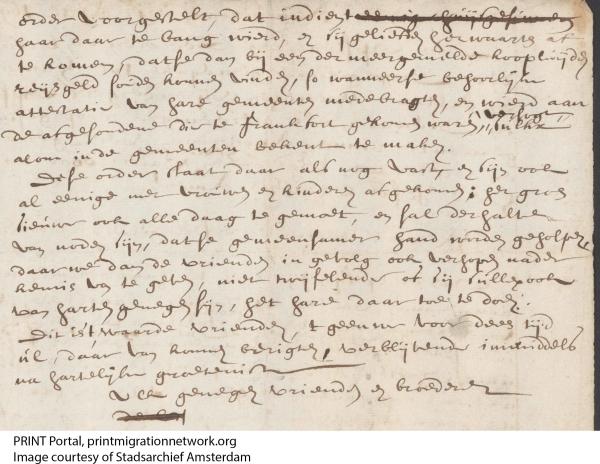 order voorgestelt, dat indient
haar daar te bang wierd, en sij geliefden herwaarts af
te komen, datse dan bij een der meergemelde koopluijden
reijsgeld souden konnen vinden, so wanneerse behoorlijke
attestatie van hare gemeenten medebragten, en wierd aan
de afgesondene die te Frankfort gekomen waren, versogt, sulkx
alom in de gemeenten bekent te maken.
Dese order staat daar als nog vast, en sijn ook
al eenige met vrouwen en kinderen afgekomen; het groen
ook alle daag te gemoet, en sal derhalte
van noden sijn, datse gemeensamer hand worden geholpen
daar we dan de vrienden in gevolg ook verhopen nader
kennis van te geven, niet twijfelende of sij sullen ook
van harten genegen sijn, het hare daar toe te doen.
Dit is't waarde vrienden, 't geen we voor dees tijd
daar van konnen berigten, verblijvende inmiddels
na hartelijke groetenisse
genegen vrienden en broederen
PRINT Portal, printmigrationnetwork.org
Image courtesy of Stadsarchief Amsterdam